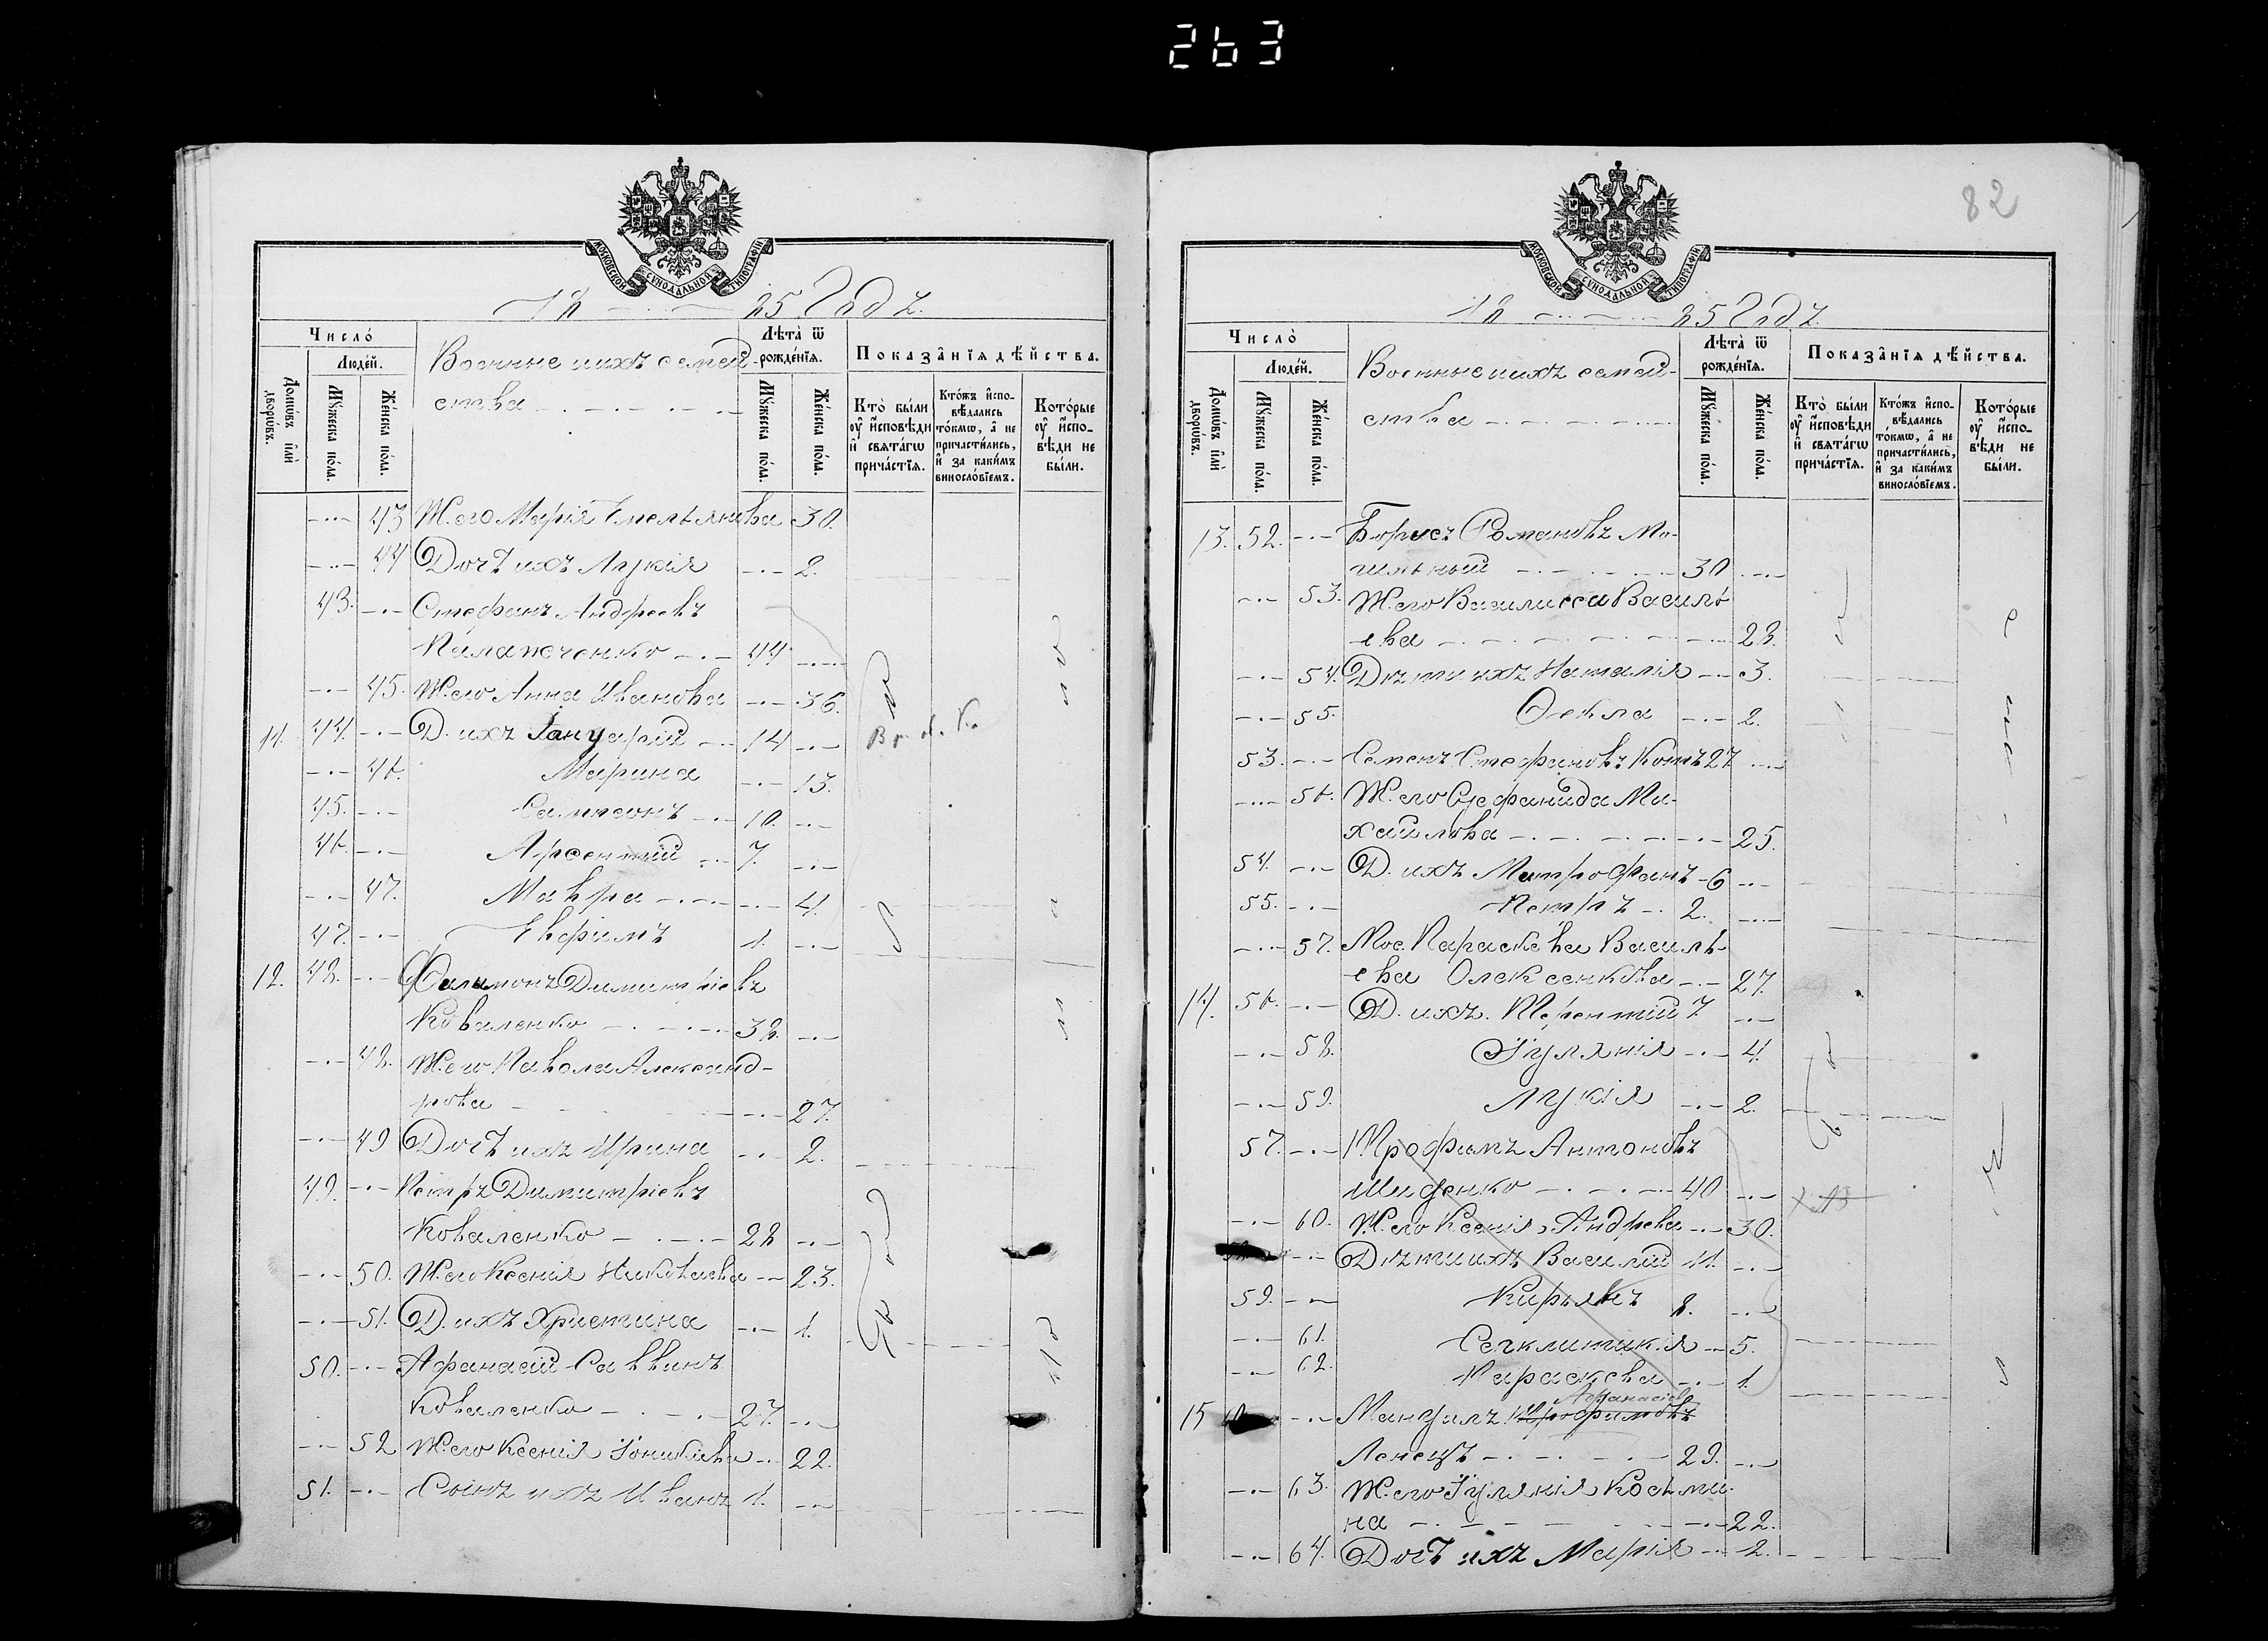 263
82
МОСКОВСКОЙ СѴНОДАЛЬНОЙ ТИПОГРАФІИ
18 — · — 85 Годъ.
Число̀
Людéй.
Домѡ́въ и҆лѝ дворѡ́въ.
Мꙋ́жеска по́ла.
Же́нска по́ла.
Военные и ихъ семей-
ства
Лѣта̀ ѿ рожде́нїѧ.
Мꙋ́жеска по́ла.
Же́нска по́ла.
Показа̑нїѧ дѣ́йства.
Кто̀ бы́ли ᲂу҆ и҆сповѣди и҆ свѧта́гѡ причастїѧ.
Кто́жъ и҆сповѣдались то́кмѡ, а҆ не причасти́лись, и҆ за каки́мъ винословїемъ.
Кото́рые ᲂу҆ и҆сповѣди не бы́ли.
— 43 Ж. его Марія Емельянова 30.
— 44 Дочь ихъ Лукія — 2.
43. — Стефанъ Андреевъ
Палажченко — 44 —
— 45. Ж. его Анна Иванова — 36.
11. 44. — Д. ихъ Іануарій — 14 —
— 46. Марина — 13.
45. — Сампсонъ — 10. —
46. — Арсентій — 7. —
— 47. Мавра — 4.
47. — Евфимъ 1. —
12. 48. — Филимонъ Димитріевъ
Коваленко — 38. —
— 48. Ж. его Павола Александ-
рова — 27.
— 49 Дочь ихъ Ирина — 2.
49. — Петръ Димитріевъ
Коваленко — 28 —
— 50. Ж. его Ксенія Николаева — 23.
— 51. Д. ихъ Христина — 1.
50. — Афанасій Саввинъ
Коваленко — 27. —
— 52 Ж. его Ксенія Іоникіева — 22.
51. — Сынъ ихъ Иванъ 1. —
МОСКОВСКОЙ СѴНОДАЛЬНОЙ ТИПОГРАФІИ
18 — · — 85 Годъ.
Число̀
Людéй.
Домѡ́въ и҆лѝ дворѡ́въ.
Мꙋ́жеска по́ла.
Же́нска по́ла.
Военные и ихъ семей-
ства
Лѣта̀ ѿ рожде́нїѧ.
Мꙋ́жеска по́ла.
Же́нска по́ла.
Показа̑нїѧ дѣ́йства.
Кто̀ бы́ли ᲂу҆ и҆сповѣди и҆ свѧта́гѡ причастїѧ.
Кто́жъ и҆сповѣдались то́кмѡ, а҆ не причасти́лись, и҆ за каки́мъ винословїемъ.
Кото́рые ᲂу҆ и҆сповѣди не бы́ли.
13. 52. — Борисъ Романовъ Мо-
гильный — 30 —
— 53. Ж. его Василисса Василь-
ева — 23.
— 54. Дѣти ихъ Наталія — 3.
— 55. Ѳекла — 2.
53. — Семенъ Стефановъ Котъ 27 —
— 56. Ж. его Стефанида Ми-
хайлова — 25.
54. — Д. ихъ Митрофанъ — 6 —
55. — Петръ — 2. —
— 57. Мос. Параскева Василь-
ева Олексенкова — 27.
14. 56. — Д. ихъ Терентій 7. —
— 58. Іуліянія — 4.
— 59. Лукія — 2.
57. — Трофимъ Антоновъ
Шиденко — 40 —
— 60. Ж. его Ксенія Андреева — 30.
— Дѣти ихъ Василій 11. —
59. — Кирьякъ 8. —
— 61. Сегклитикія — 5.
— 62. Параскева — 1.
Афанасіевъ
15 — Мануилъ Трофимовъ
Ленецъ — 29. —
— 63. Ж. его Іуліянія Косьми-
на — 22.
— 64. Дочь ихъ Марія — 2.